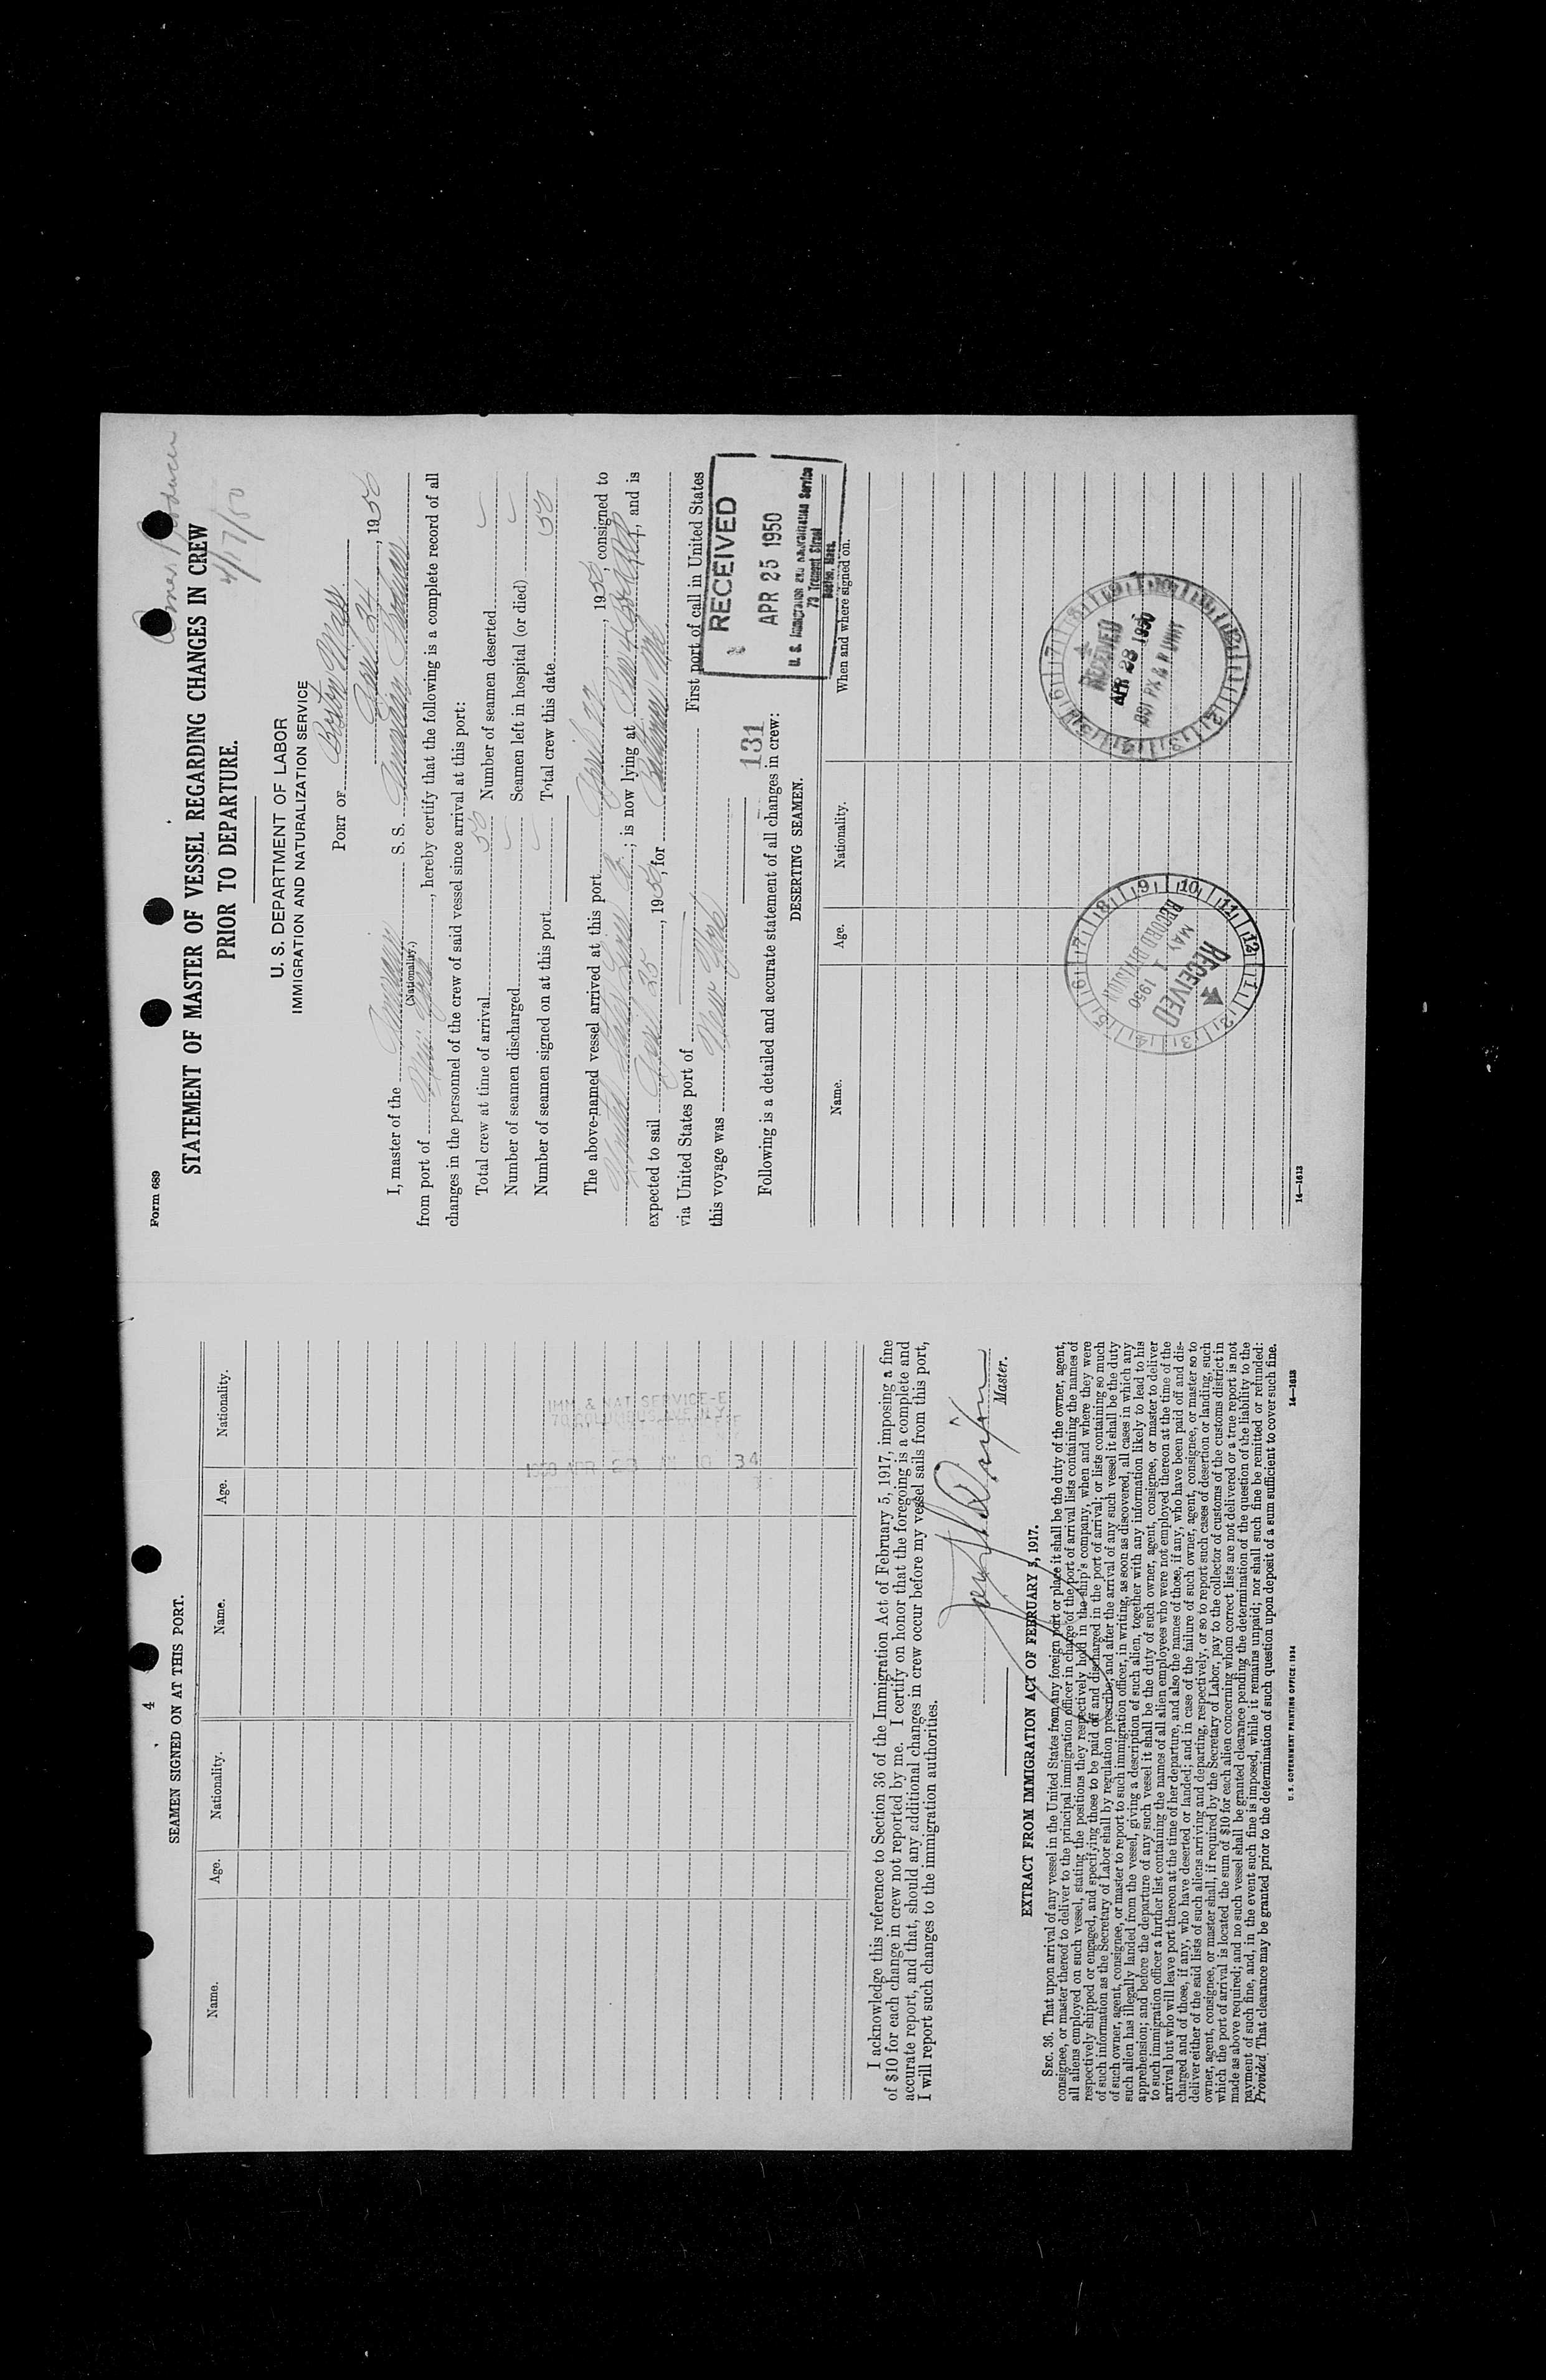 Form 689
Amer. Producer
4/17/50
STATEMENT OF MASTER OF VESSEL REGARDING CHANGES IN CREW
PRIOR TO DEPARTURE.
U. S. DEPARTMENT OF LABOR
IMMIGRATION AND NATURALIZATION SERVICE
PORT OF Boston Mass.
April 24, 1950
I, master of the American S. S. American Producer
(Nationality.)
from port of New York, hereby certify that the following is a complete record of all
changes in the personnel of the crew of said vessel since arrival at this port:
Total crew at time of arrival 50 Number of seamen deserted
Number of seamen discharged Seamen left in hospital (or died)
Number of seamen signed on at this port Total crew this date 50
The above-named vessel arrived at this port April 22, 1950, consigned to
United States Lines Co.; is now lying at , and is
expected to sail April 25, 1950, for
via United States port of First port of call in United States
this voyage was New York
RECEIVED
APR 25 1950
U. S. Immigration and Naturalization Service
73 Tremont Street
Boston, Mass.
131
Following is a detailed and accurate statement of all changes in crew:
DESERTING SEAMEN.
Name. Age. Nationality. When and where signed on.
RECEIVED
MAY 1 1950
RECEIVED
APR 28 1950
14—1613
4
SEAMEN SIGNED ON AT THIS PORT.
Name. Age. Nationality. Name. Age. Nationality.
IMM. & NAT. SERVICE-E
70 COLUMBUS AVE. N.Y.
1950 APR 28 10 34
I acknowledge this reference to Section 36 of the Immigration Act of February 5, 1917, imposing a fine
of $10 for each change in crew not reported by me. I certify on honor that the foregoing is a complete and
accurate report, and that, should any additional changes in crew occur before my vessel sails from this port,
I will report such changes to the immigration authorities.
Master.
EXTRACT FROM IMMIGRATION ACT OF FEBRUARY 5, 1917.
SEC. 36. That upon arrival of any vessel in the United States from any foreign port or place it shall be the duty of the owner, agent,
consignee, or master thereof to deliver to the principal immigration officer in charge of the port of arrival lists containing the names of
all aliens employed on such vessel, stating the positions they respectively hold in the ship's company, when and where they were
respectively shipped or engaged, and specifying those to be paid off and discharged in the port of arrival; or lists containing so much
of such information as the Secretary of Labor shall by regulation prescribe; and after the arrival of any such vessel it shall be the duty
of such owner, agent, consignee, or master to report to such immigration officer, in writing, as soon as discovered, all cases in which any
such alien has illegally landed from the vessel, giving a description of such alien, together with any information likely to lead to his
apprehension; and before the departure of any such vessel it shall be the duty of such owner, agent, consignee, or master to deliver
to such immigration officer a further list containing the names of all alien employees who were not employed thereon at the time of the
arrival but who will leave port thereon at the time of her departure, and also the names of those, if any, who have been paid off and dis-
charged and of those, if any, who have deserted or landed; and in case of the failure of such owner, agent, consignee, or master so to
deliver either of the said lists of such aliens arriving and departing, respectively, or so to report such cases of desertion or landing, such
owner, agent, consignee, or master shall, if required by the Secretary of Labor, pay to the collector of customs of the customs district in
which the port of arrival is located the sum of $10 for each alien concerning whom correct lists are not delivered or a true report is not
made as above required; and no such vessel shall be granted clearance pending the determination of the question of the liability to the
payment of such fine, and, in the event such fine is imposed, while it remains unpaid; nor shall such fine be remitted or refunded:
Provided, That clearance may be granted prior to the determination of such question upon deposit of a sum sufficient to cover such fine.
U. S. GOVERNMENT PRINTING OFFICE: 1934 14—1613